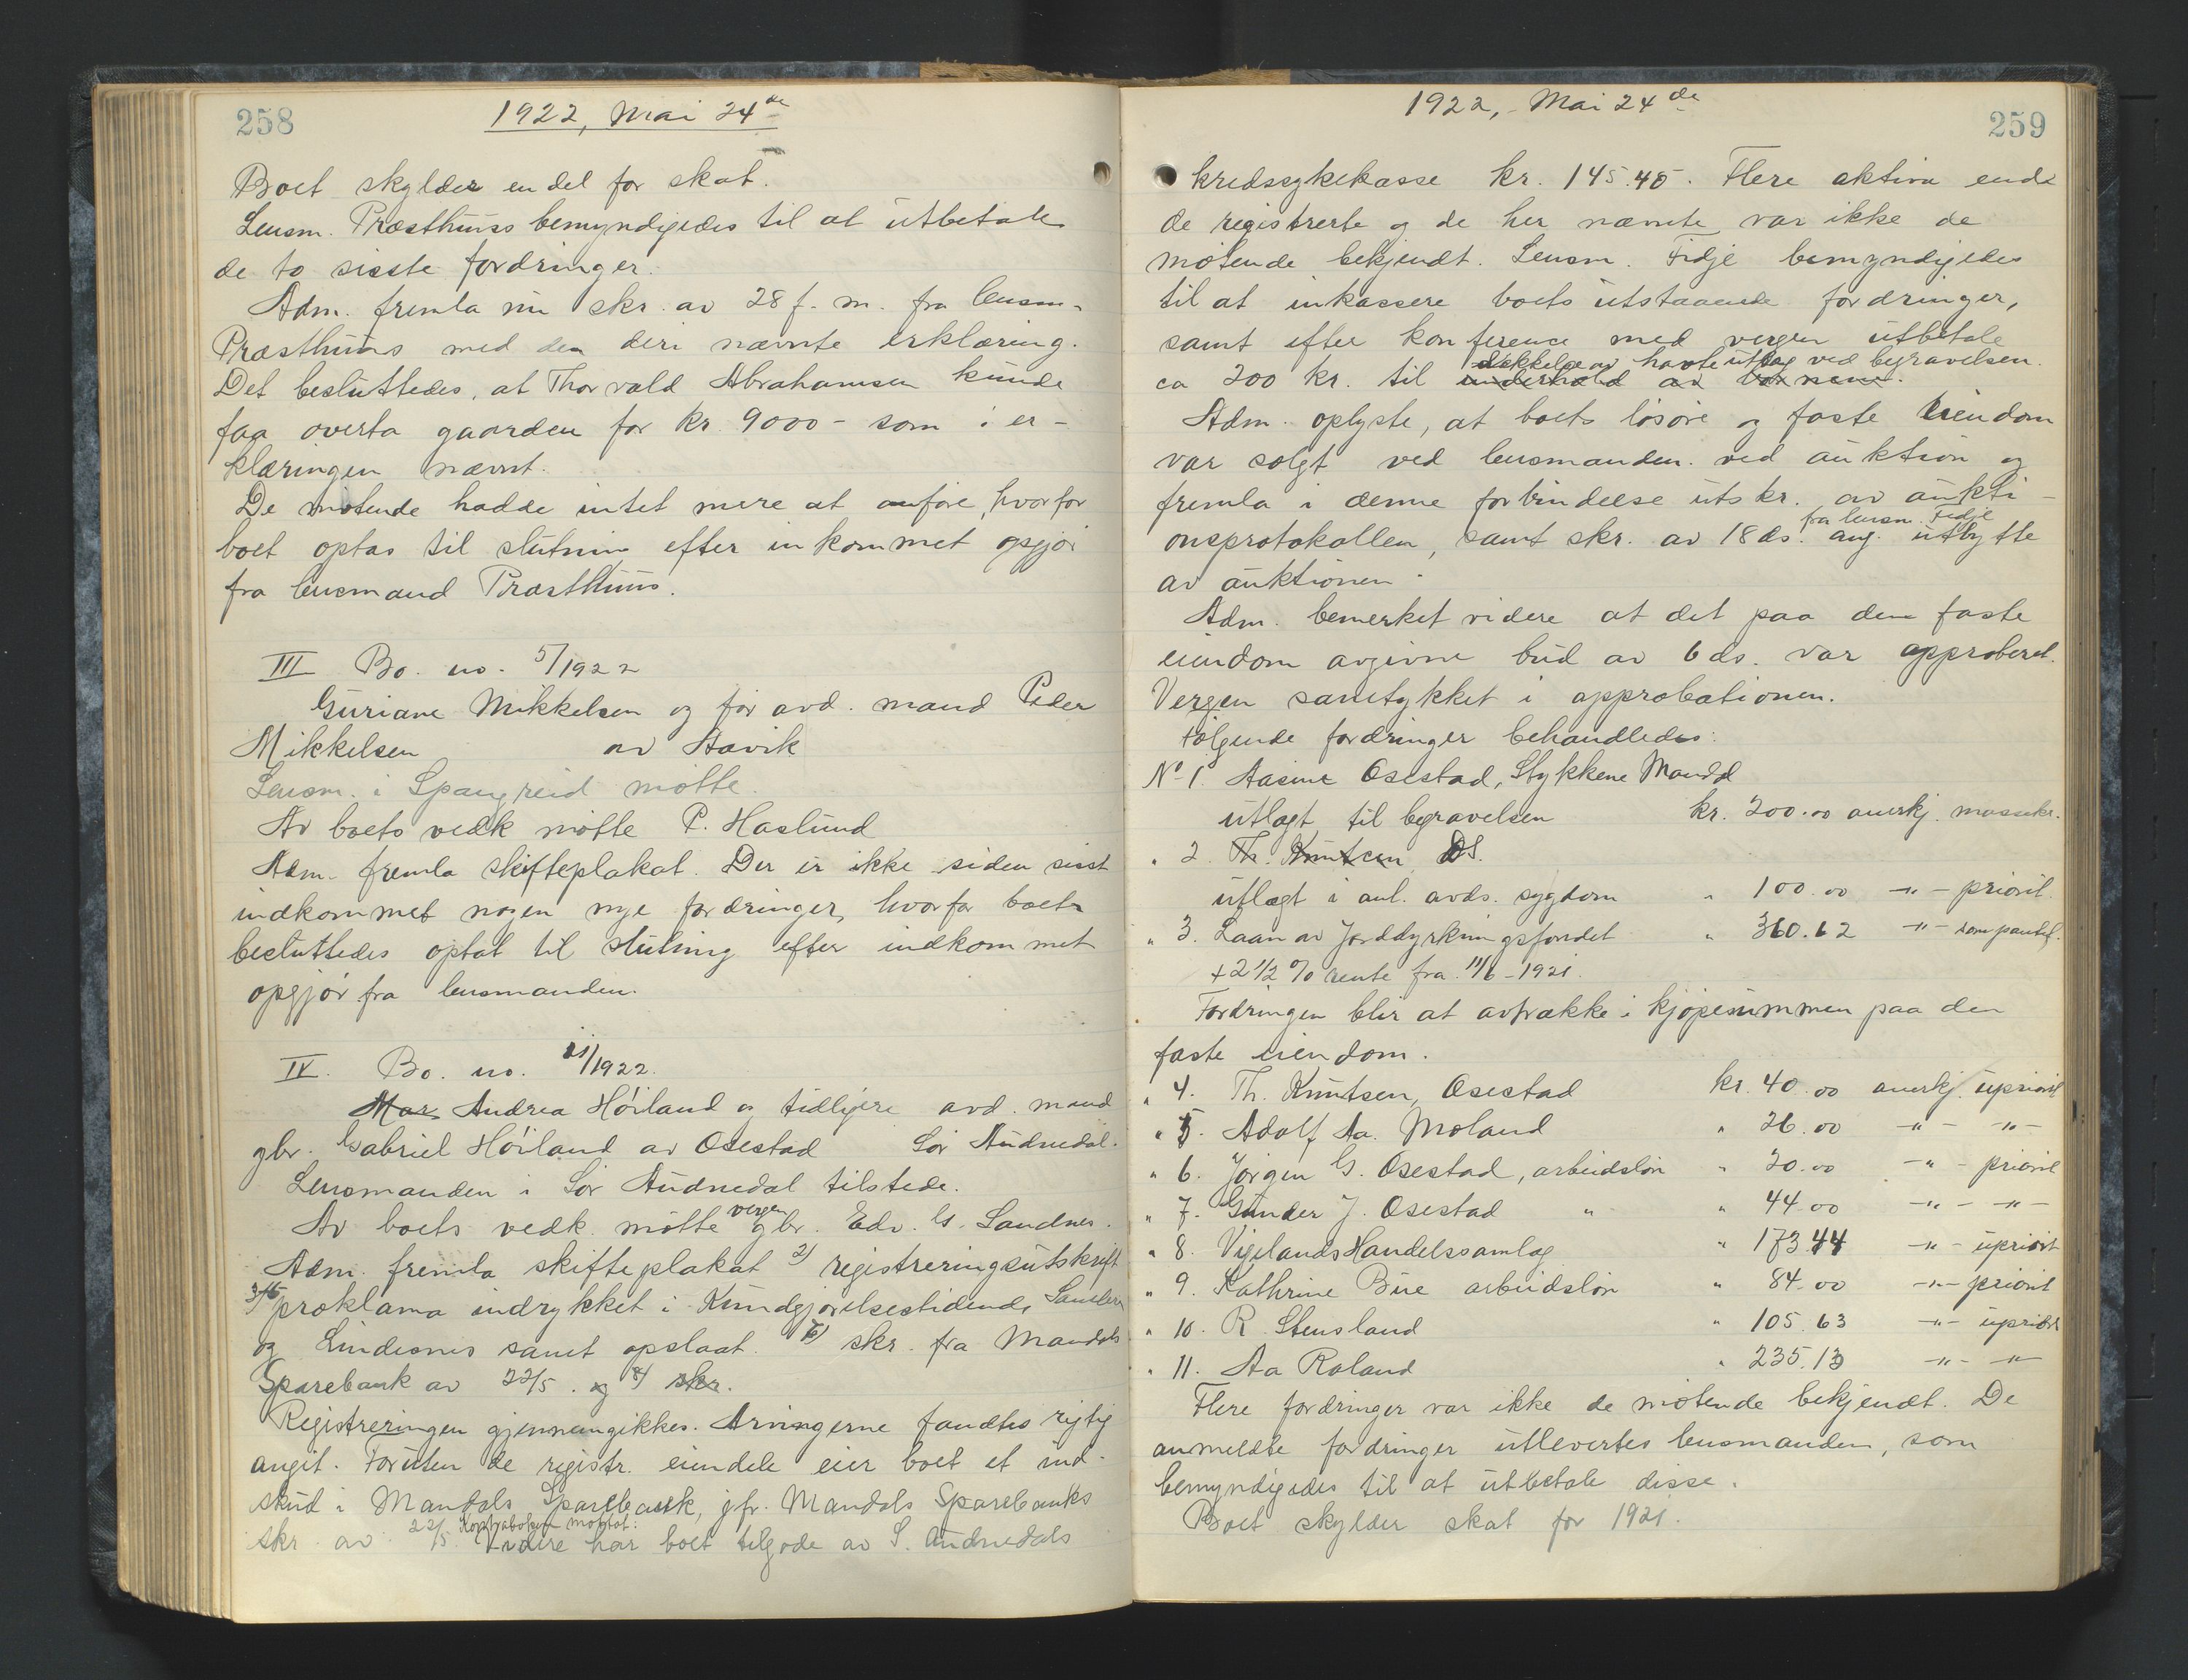 258
1922, Mai 24de
Boet skylder en del for skat.
Lensm. Præsthuus bemyndigedes til at utbetale
de to sisste fordringer.
Adm. fremla nu skr. av 28 f. m. fra lensm.
Præsthuus med den deri nævnte erklæring.
Det besluttedes, at Thorvald Abrahamsen kunde
faa overta gaarden for kr. 9000 - som i er-
klæringen nævnt.
De møtende hadde intet mere at anføre, hvorfor
boet optas til slutning efter inkommet opgjør
fra lensmand Præsthuus.
III Bo. no. 5/1922
Guriane Mikkelsen og før avd. mand Peder
Mikkelsen av Aavik
Lensm. i Spangreid møtte.
Av boets vedk møtte P. Haslund
Adm. fremla skifteplakat. Der er ikke siden sisst
indkommet nogen nye fordringer, hvorfor boet
besluttedes optat til slutning efter indkommet
opgjør fra lensmanden.
IV. Bo. no. 21/1922.
Mar Andrea Høiland og tidligere avd. mand
gbr. Gabriel Høiland av Osestad Sør Audnedal.
Lensmanden i Sør Audnedal tilstede.
Av boets vedk. møtte vergen gbr. Edv. G. Landnes.
Adm. fremla skifteplakat 2) registreringsutskrift
3/6 proklama indrykket i Kundgjørelsestidende
og Lindesnes samt opslaat. 7) skr. fra Mandals
Sparebank av 22/5. og 8) skr.
Registreringen gjennemgikkes. Arvingerne fandtes rigtig
angit. Foruten de registr. eiendele eier boet et ind-
skud i Mandals Sparebank, jfr. Mandals Sparebanks
skr. av 22/5. Videre har boet tilgode av S. Audnedals
259
1922, - Mai 24de
kredssykekasse kr. 145.45. Flere aktiva end
de registrerte og de her nævnte var ikke de
møtende bekjendt. Lensm. Fidje bemyndigedes
til at inkassere boets utstaaende fordringer,
samt efter konference med vergen utbetale
dækkelse av havte utlæg ved begravelsen.
ca 200 kr. til underhold av barnene.
Adm. oplyste, at boets løsøre og faste eiendom
var solgt ved lensmanden ved auktion og
fremla i denne forbindelse utskr. av aukti-
fra lensm. Fidje
onsprotokollen, samt skr. av 18 ds. ang. utbytte
av auktionen.
Adm. bemerket videre at det paa den faste
eiendom avgivne bud av 6 ds. var approberet.
Vergen samtykket i approbationen.
Følgende fordringer behandledes:
No 1. Aasine Osestad, Stykkene Mandal
utlagt til begravelsen kr. 200.00 anerkj. massekr.
" 2. Th. Knutsen DS.
utlagt i anl. avds. sygdom " 100.00 -"- priorit.
" 3. Laan av Jorddyrkningsfondet " 360.62 -"- som pantef.
+ 2 1/2 % rente fra 11/6 - 1921.
Fordringen blir at avtrække i kjøpesummen paa den
faste eiendom.
" 4. Th. Knutsen, Osestad kr. 40.00 anerkj. upriorit
" 5. Adolf Aa. Moland " 26.00 -"- -"-
" 6. Jørgen G. Osestad, arbeidsløn " 20.00 -"- priorit
" 7. Gunder J. Osestad " " 44.00 -"- -"-
" 8. Vigelands Handelssamlag " 173.44 -"- upriorit
" 9. Kathrine Bue arbeidsløn " 84.00 -"- priorit
" 10. R. Stensland " 105.63 -"- upriorit
" 11. Aa Roland " 235.13 -"- -"-
Flere fordringer var ikke de møtende bekjendt. De
anmeldte fordringer utlevertes lensmanden, som
bemyndigedes til at utbetale disse.
Boet skylder skat for 1921.